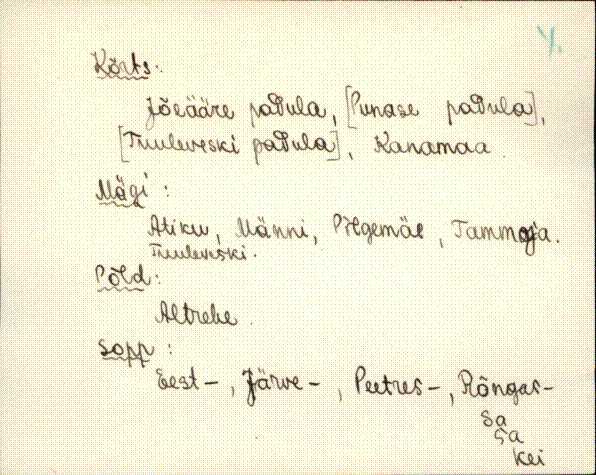 Y.
Kõrts:
Jõeääre padula, [Punase padula],
[Tuuleveski padula], Kanamaa.
Mägi:
Atiku, Männi, Pilgemäe, Tammoja.
Tuuleveski.
Põld:
Altrehe.
Sopp:
Eest-, Järve-, Peetres-, Rõngas-
sa
sa
kei